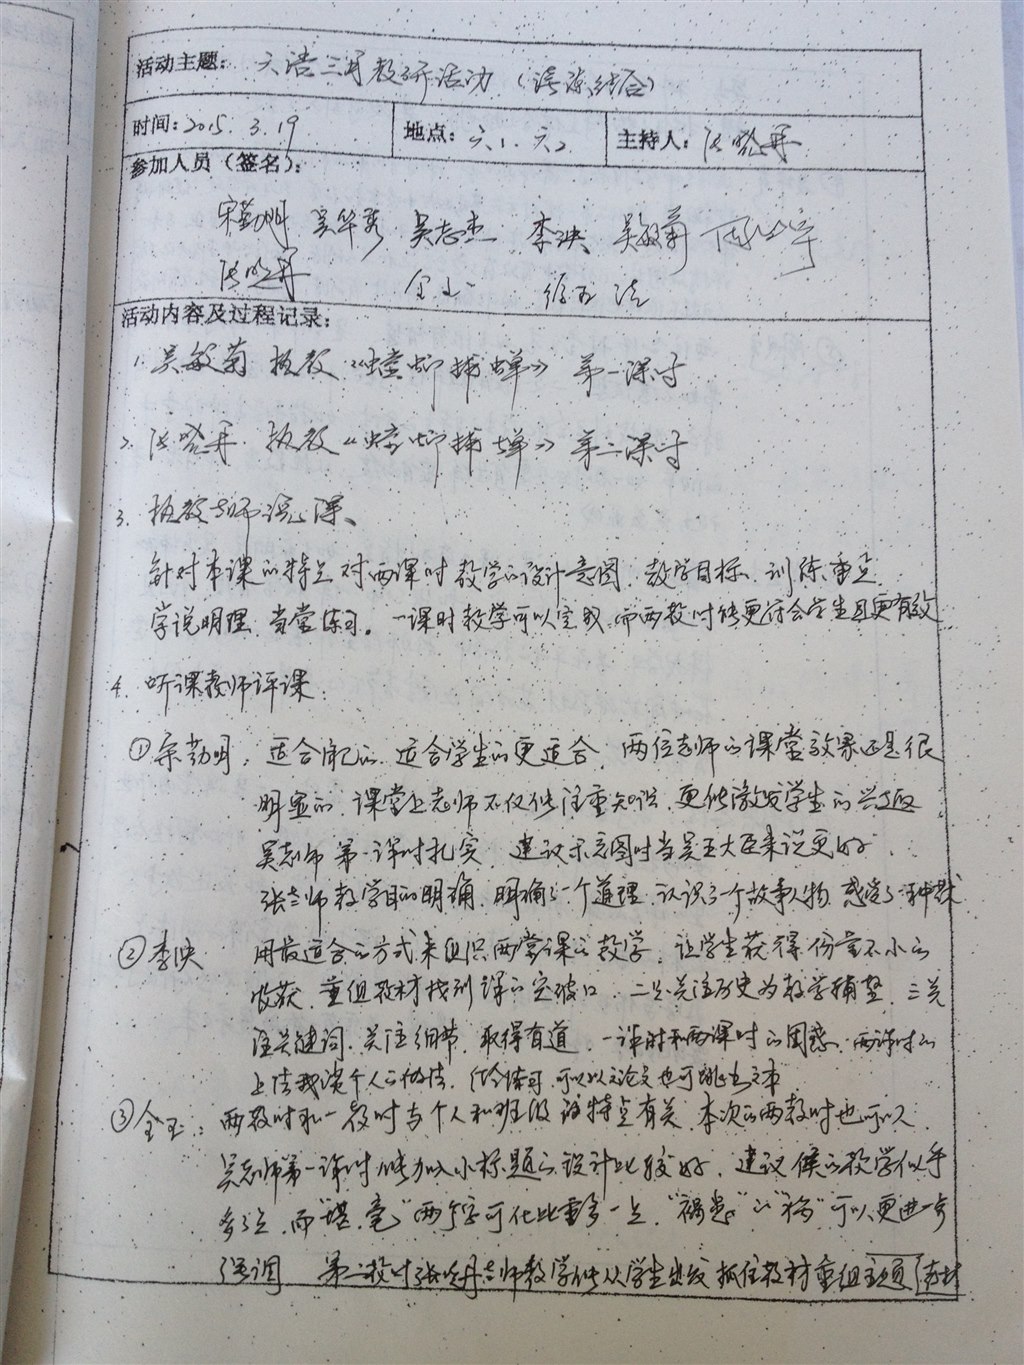 活动主题： 六语三月教研活动（读说结合）
时间：2015.3.19 地点：六1.六2 主持人：张晓丹
参加人员（签名）：
宋勤明 吴华秀 吴志杰 李映 吴敏菊
张晓丹 金玉 徐
活动内容及过程记录：
1. 吴敏菊 执教《螳螂捕蝉》 第一课时
2. 张晓丹. 执教《螳螂捕蝉》 第二课时
3. 执教老师说课、
针对本课的特点 对两课时 教学的设计意图. 教学目标、训练重点
学说明理 当堂练习。一课时教学可以完成 而两教时能更符合学生且更有效
4. 听课教师评课：
①宋勤明： 适合自己的 适合学生的更适合. 两位老师的课堂效果还是很
明显的. 课堂上老师不仅能注重知识、更能激发学生的兴趣
吴老师 第一课时扎实 建议示意图时当吴王大臣来说更好.
张老师 教学目的明确. 明确了一个道理. 认识了一个故事人物. 感受了一种
②李映 用最适合的方式来组织两堂课的教学. 让学生获得份量不小的
收获. 重组教材找到课的突破口. 二是关注历史为教学铺垫. 三关
注关键词. 关注细节. 取得有道. 一课时和两课时的困惑. 两课时的
上法我谈个人的做法. 练习. 可以以文论文也可跳出文本
③金玉： 两教时和一教时与个人和班级 特点有关. 本次的两教时也可以.
吴老师第一课时能加入小标题的设计比较好. 建议侯的教学似乎
多了点. 而“堪、毫”两个字可化比重多一点. “祸患”的“祸”可以更进一步
强调 第二教时张晓丹老师教学能从学生出发 抓住教材重组主题